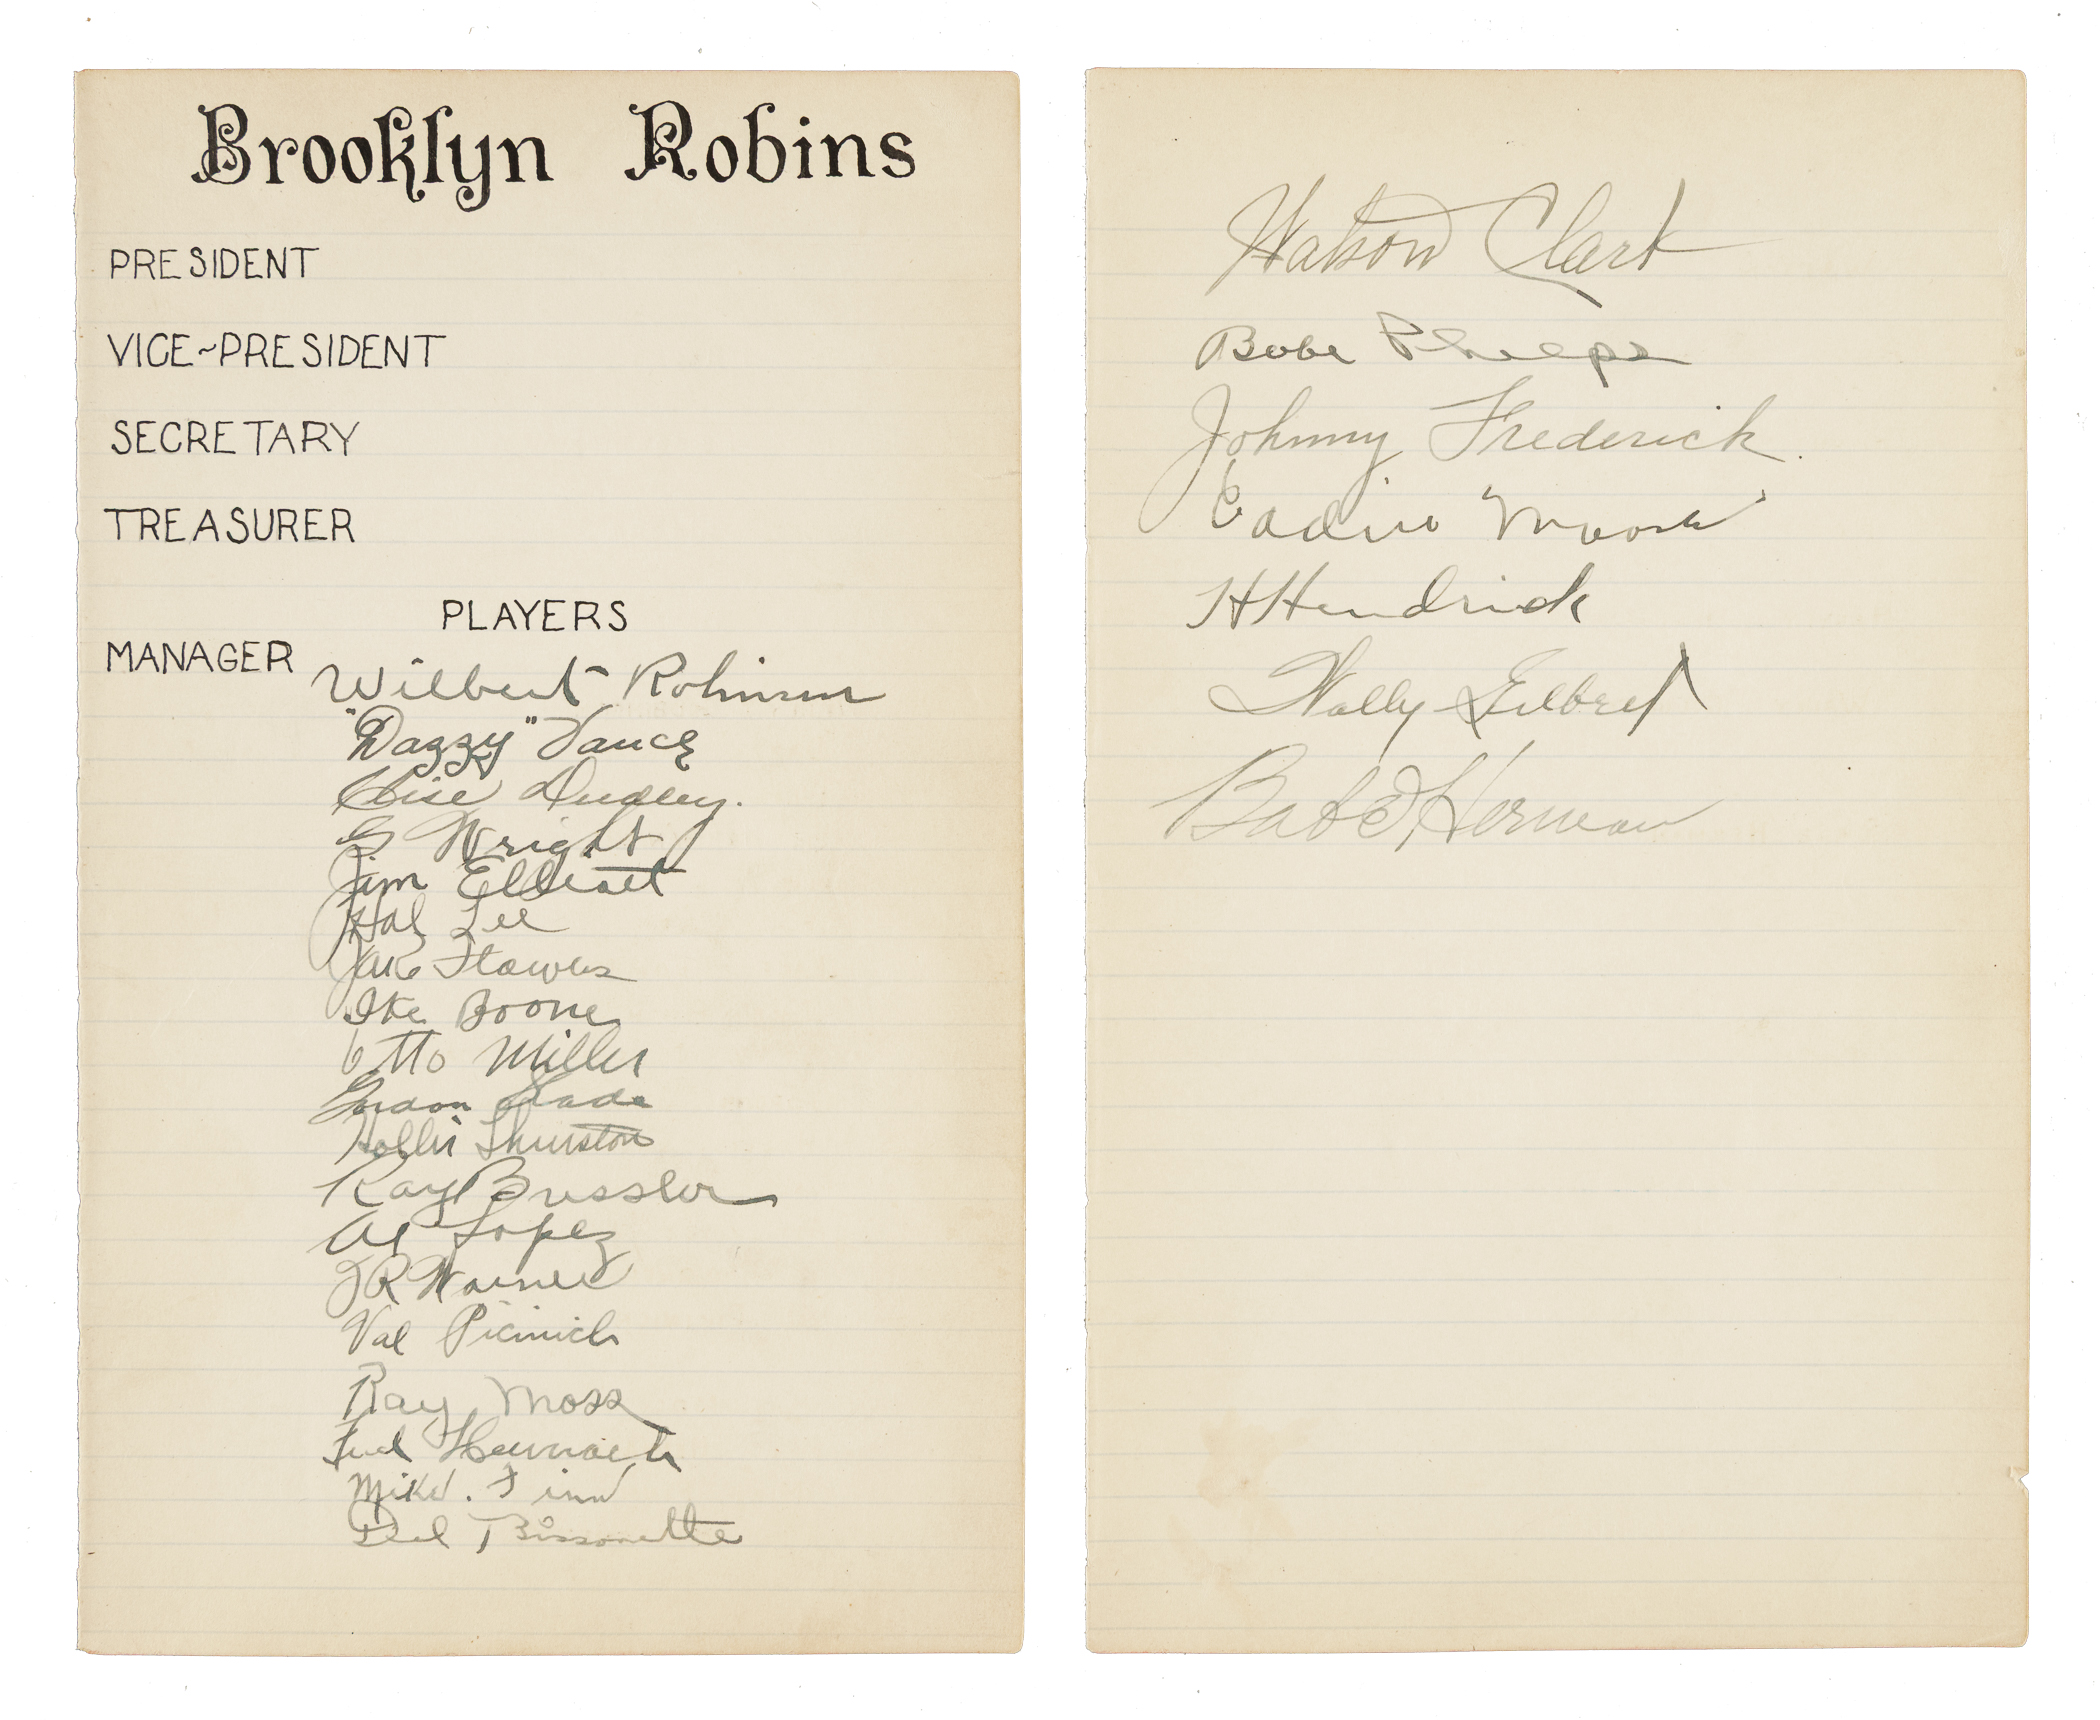 Brooklyn Robins
PRESIDENT
VICE~PRESIDENT
SECRETARY
TREASURER
PLAYERS
MANAGER Wilbert Robinson
"Dazzy" Vance
Clise Dudley.
G Wright
Jim Elliott
Hal Lee
Jake Flowers
Ike Boone
Otto Miller
Gordon Slade
Hollis Thurston
Ray Bressler
Al Lopez
JR Warner
Val Picinich
Ray Moss
Fred Heimach
Mike. Finn
Del Bissonette
Watson Clark
Babe Phelps
Johnny Frederick.
Eddie Moore
H Hendrick
Wally Gilbert
Babe Herman